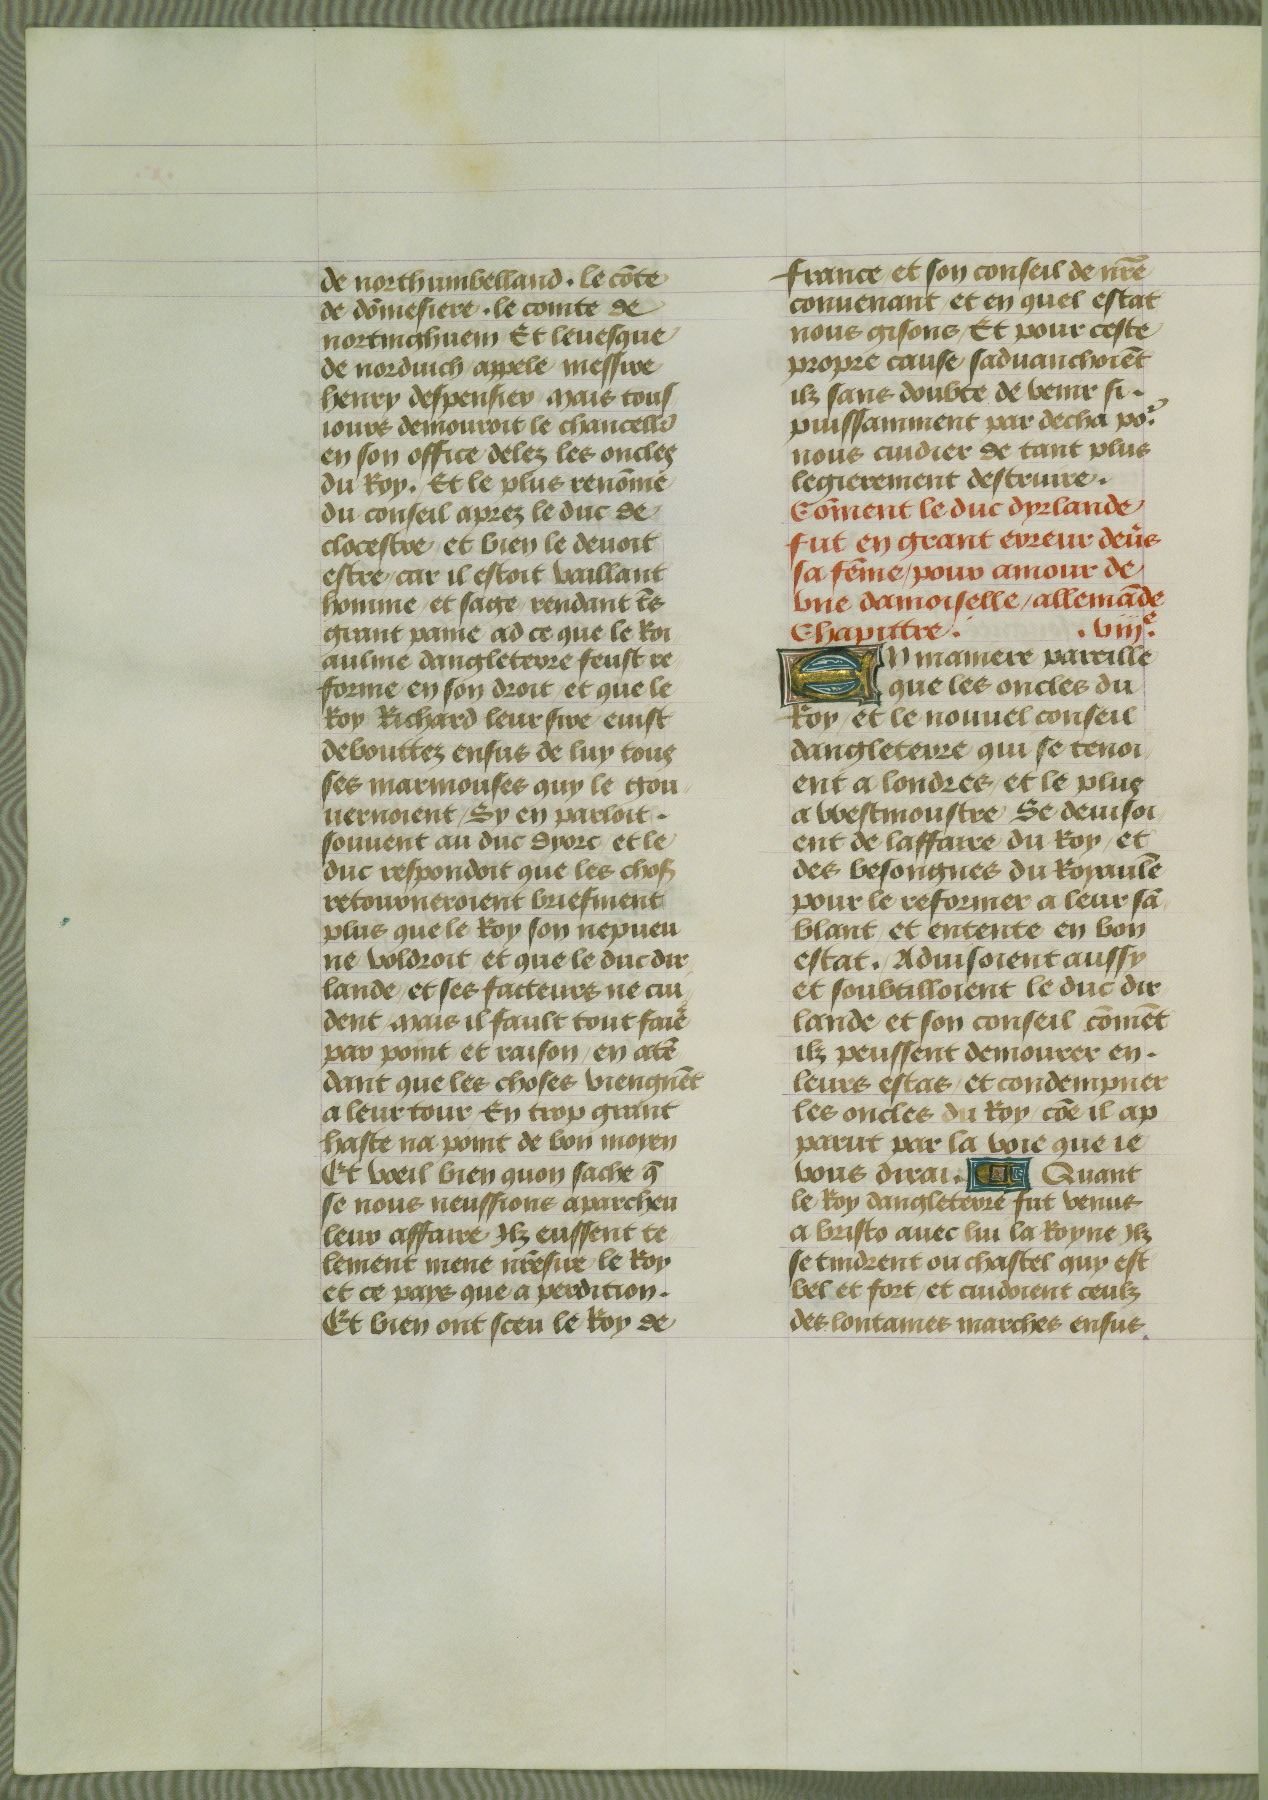 de northumbelland · le cōte
de dōmesiere · le comte de
nortinghuem Et leuesque
de norduich appele messire
henry despensier mais tous
iours demouroit le chancellr̄
en son office delez les oncles
du Roy . Et le plus renōme
du conseil aprez le duc de
clocestre et bien le deuoit
estre / car il estoit vaillant
homme / et sage / rendant tˢ
grant paine ad ce que le Roi
aulme dangleterre feust re
forme en son droit / et que le
Roy Richard leur sire / euist
debouttez ensus de luy tous
ses marmouses quy le gou
uernoient / Sy en parloit .
souuent au duc dyorc / et le
duc respondoit que les chos̄
retourneroient briefment
plus que le Roy son nepueu
ne voldroit / et que le duc dir
lande / et ses facteurs ne cui
dent / mais il fault tout fair̄e
par point / et raison / en atē
dant que les choses viengnēt
a leur tour En trop grant
haste na point de bon moyen
Et weil bien quon sache q̄
se nous neussions aparcheu
leur affaire Ilz eussent te
lement mene nr̄esire le Roy
et ce pays que a perdition .
Et bien ont sceu le Roy de
france / et son conseil de nr̄e
conuenant / et en quel estat
nous gisons / Et pour ceste
propre cause saduanchoiēt
ilz sans doubte de venir si .
puissamment par decha poʳ
nous cuidier de tant plus
legierement destruire .
Cōment le duc dyrlande
fut en grant erreur deu̅s
sa fēme / pour amour de
vne damoiselle / allemāde
Chapittre . . viijᵉ.
EN maniere pareille
que les oncles du
Roy / et le nouuel conseil
dangleterre qui se tenoi
ent a londres / et le plus
a westmoustre Se deuisoi
ent de laffaire du Roy / et
des besongnes du Royaulē
pour le reformer a leur sā
blant / et entente en bon
estat . Aduisoient aussy
et soubtilloient le duc dir
lande et son conseil cōmēt
ilz peussent demourer en .
leurs estas / et condempner
les oncles du Roy / cōe il ap
parut par la voie que ie
vous dirai . Quant
le Roy dangleterre fut venus
a bristo auec lui la Royne Ilz
se tindrent ou chastel quy est
bel et fort / et cuidoient ceulz
des lontaines marches ensus